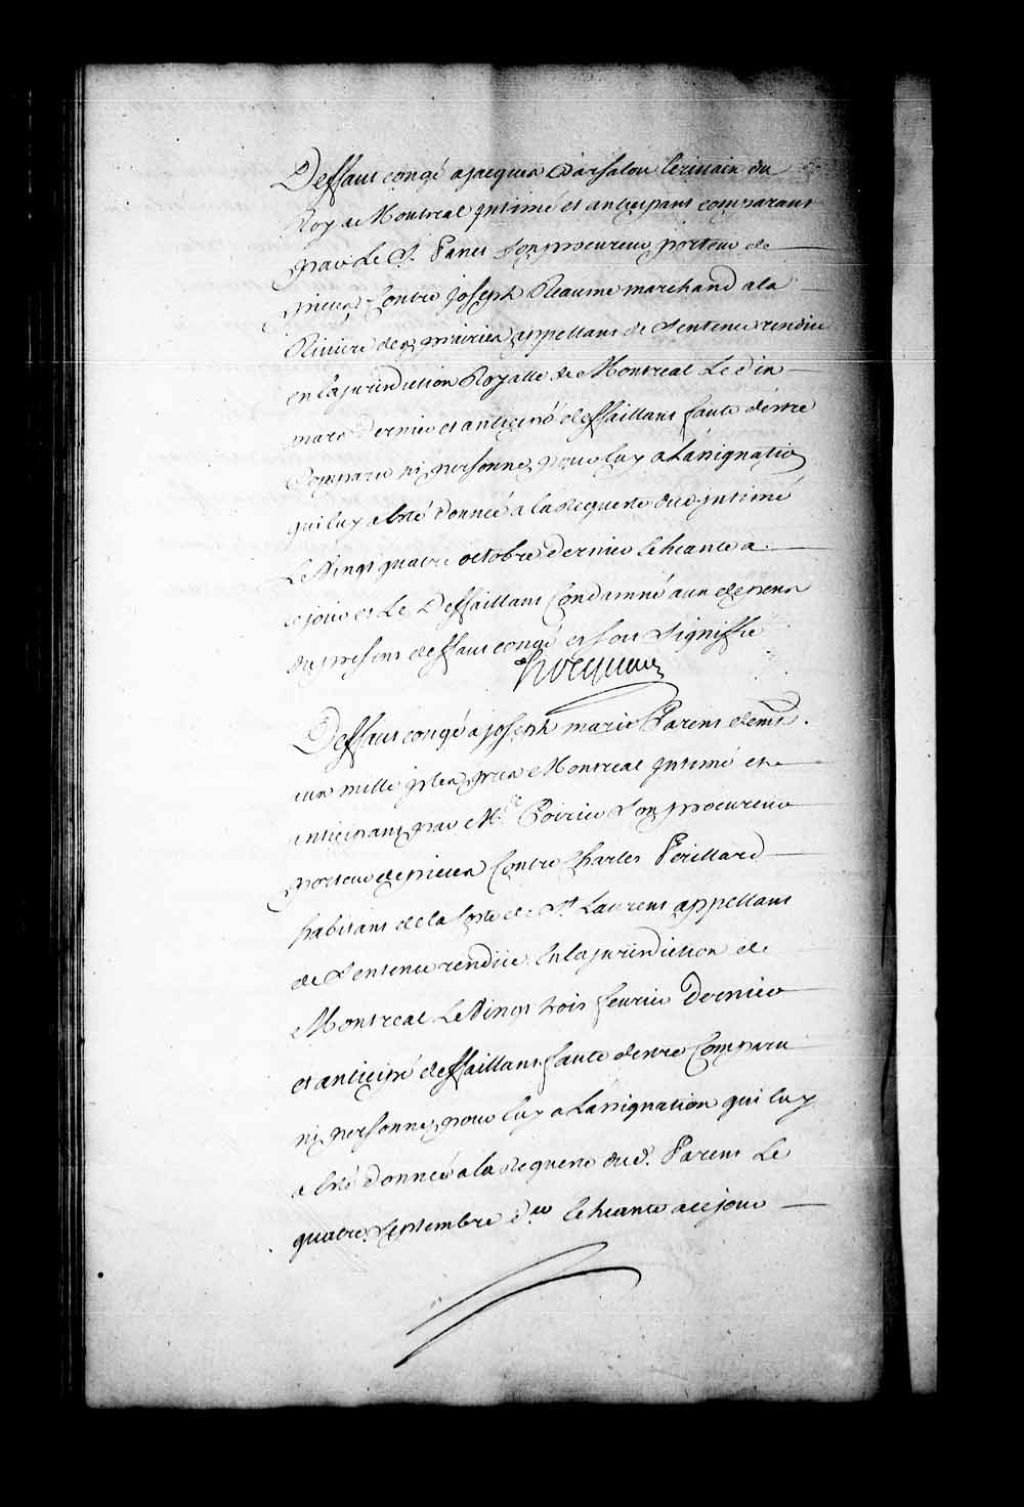 Deffaut congé a jacques Darsalou Ecrivain du
Roy a Montreal Intimé et anticipant comparant
par Le Sr. Panet Son procureur porteur de
pieces Contre Joseph Reaume marchand a la
Riviere des prairies appellant de Sentence rendüe
en la jurisdiction Royalle de Montreal Le dix
mars Dernier et anticipé deffaillant faute d'estre
Comparu ni personne pour luy a Lassignation
qui luy a Eté donnée a la Requeste dud. Intimé
Le Vingt quatre octobre dernier Echeante a
ce jour et Le Deffaillant Condamné aux depens
du present deffaut congé et soit Signiffié
hocquart
Deffaut congé a joseph marie Parent demt.
aux mille isles pres Montreal Intimé et
anticipant par Me. Poirier Son procureur
porteur de pieces Contre Charles Perillard
habitant de la Coste de St. Laurent appellant
de Sentence rendüe En la jurisdiction de
Montreal Le Vingt trois fevrier Dernier
et anticipé deffaillant faute d'estre Comparu
ny personne pour luy a Lassignation qui luy
a Eté donnée a la Requeste dud. Parent Le
quatre Septembre der Echeante a ce jour